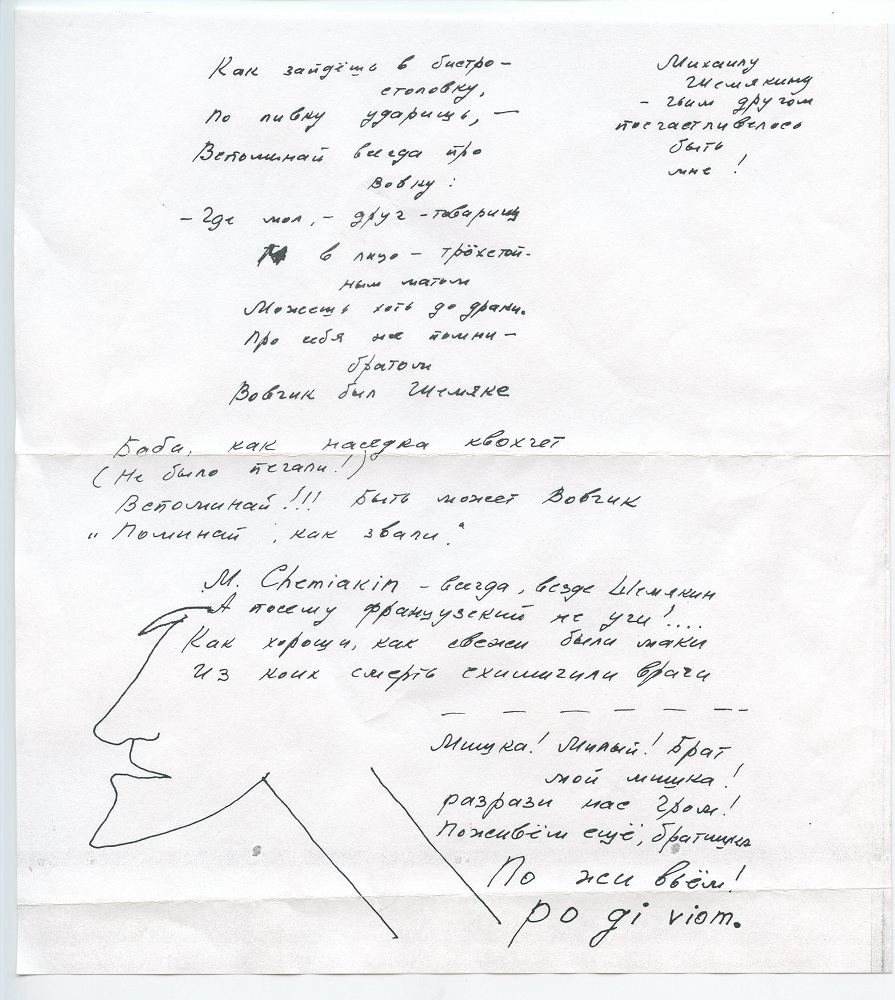 Михаилу
Шемякину
- чьим другом
посчастливелось
быть
мне!
Как зайдёшь в бистро-
столовку,
По пивку ударишь, —
Вспоминай всегда про
Вовку:
- Где мол, - друг-товарищ
в лицо - трёхстой-
ным матом
Можешь хоть до драки.
Про себя же помни -
братом
Вовчик был Шемяке
Баба, как наседка квохчет
(Не было печали!)
Вспоминай!!! Быть может Вовчик
"Поминай, как звали."
M. Chemiakin - всегда, везде Шемякин
А посему французский не учи!....
Как хороши, как свежи были маки
Из коих смерть схимичили врачи
Мишка! Милый! Брат
мой мишка!
разрази нас Гром!
Поживём ещё, братишка
По жи вьём!
po gi viom.